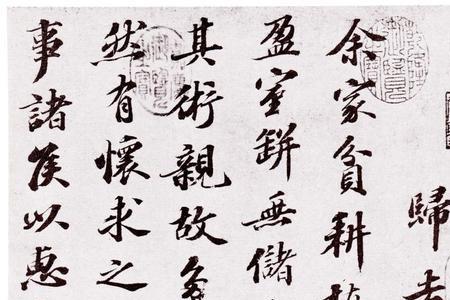 歸去
余家貧耕植
盈室缾無儲
其術親故多
然有懷求之
事諸侯以惠